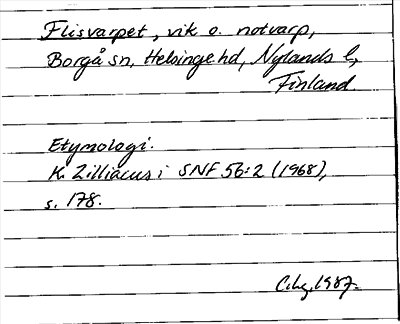 Flisvarpet, vik o. notvarp,
Borgå sn, Helsinge hd, Nylands l,
Finland.
Etymologi.
K. Zilliacus i SNF 56:2 (1968),
s. 178.
1987.